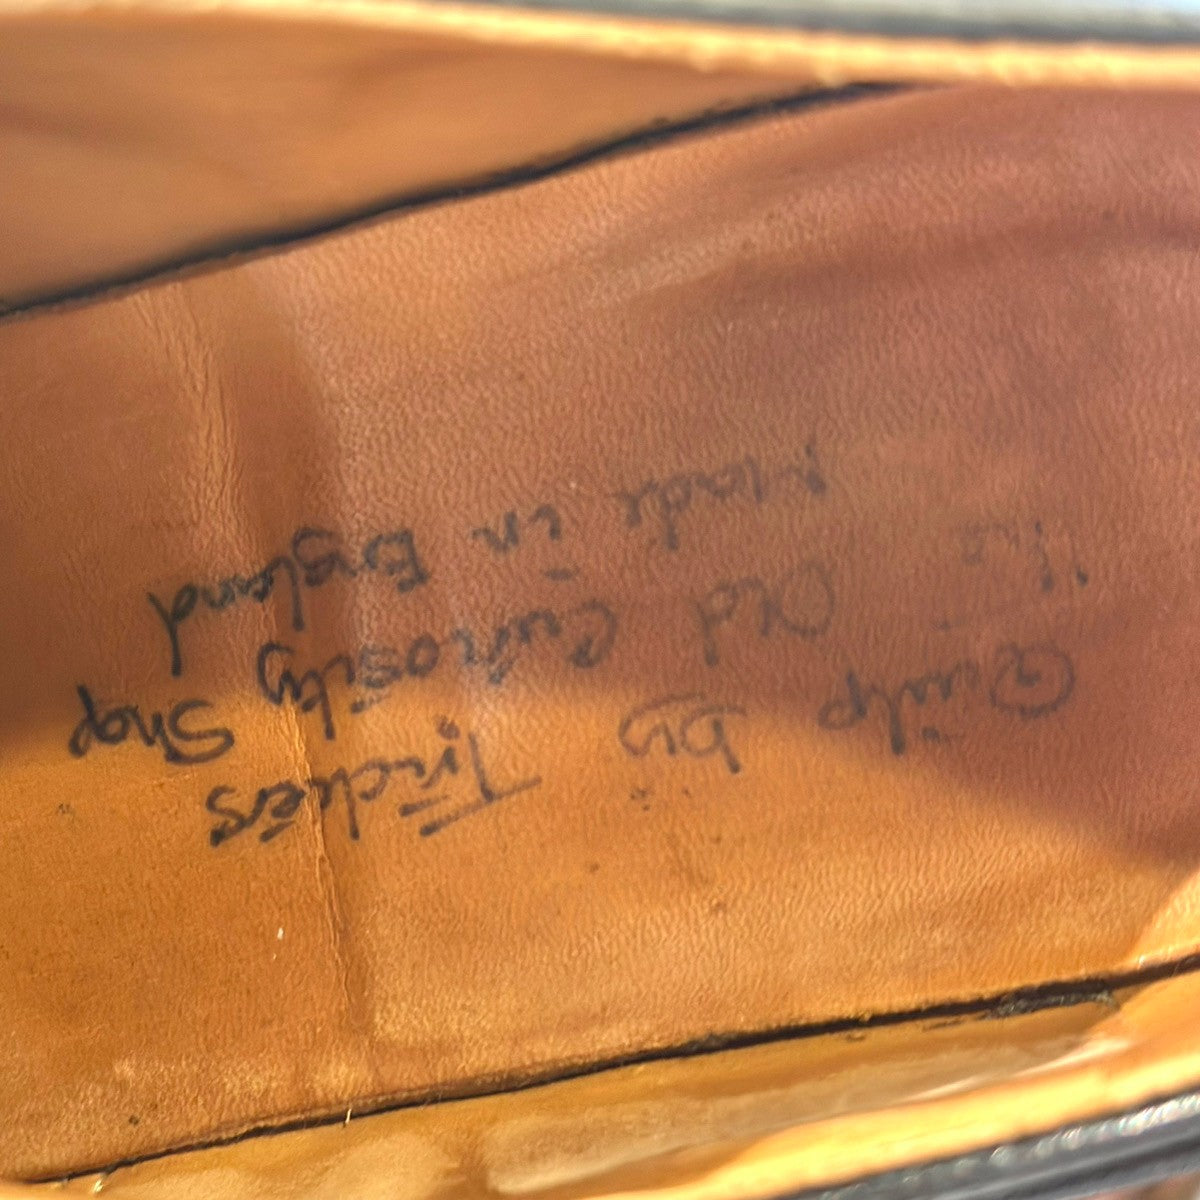 Quilp by Trickers
The Old Curiosity Shop
Made in England